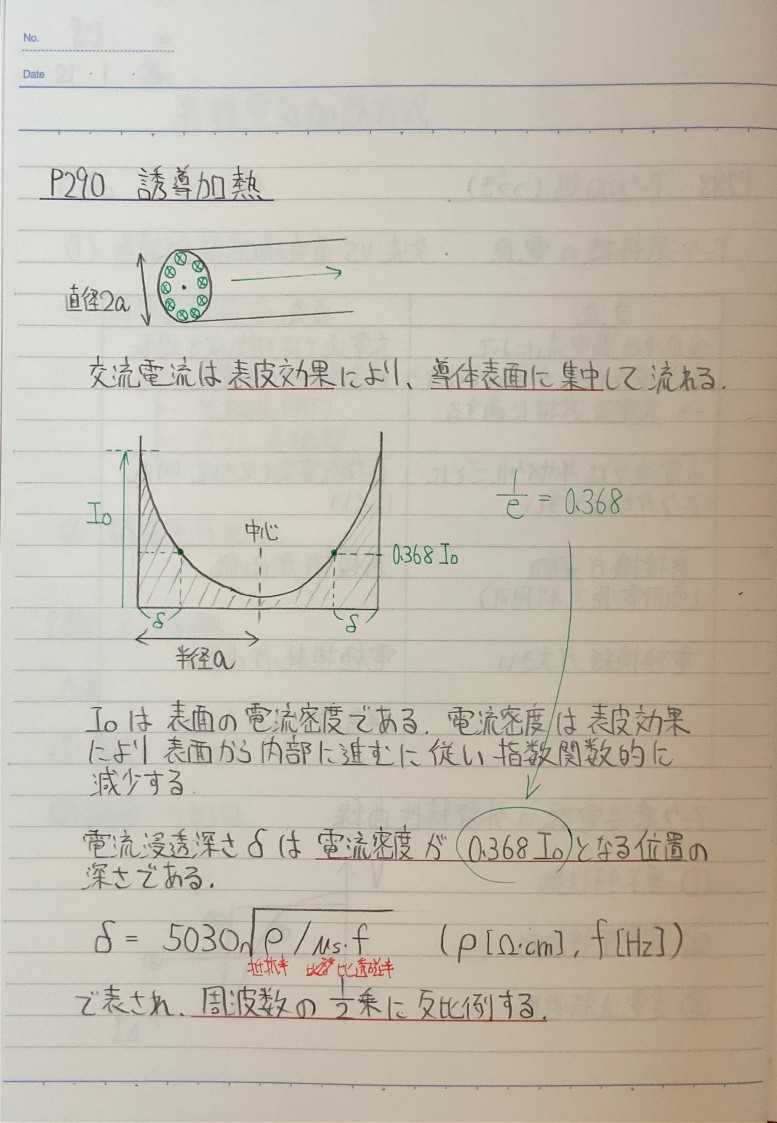 No.
Date
P290 誘導加熱
直径2a
交流電流は表皮効果により、導体表面に集中して流れる.
I₀
中心
1/e = 0.368
0.368 I₀
δ
δ
半径a
I₀は表面の電流密度である. 電流密度は表皮効果
により表面から内部に進むに従い指数関数的に
減少する.
電流浸透深さδは電流密度が 0.368 I₀ となる位置の
深さである.
δ = 5030√ρ/μs·f (ρ[Ω·cm], f[Hz])
抵抗率 比透磁率
で表され、周波数の1/2乗に反比例する.